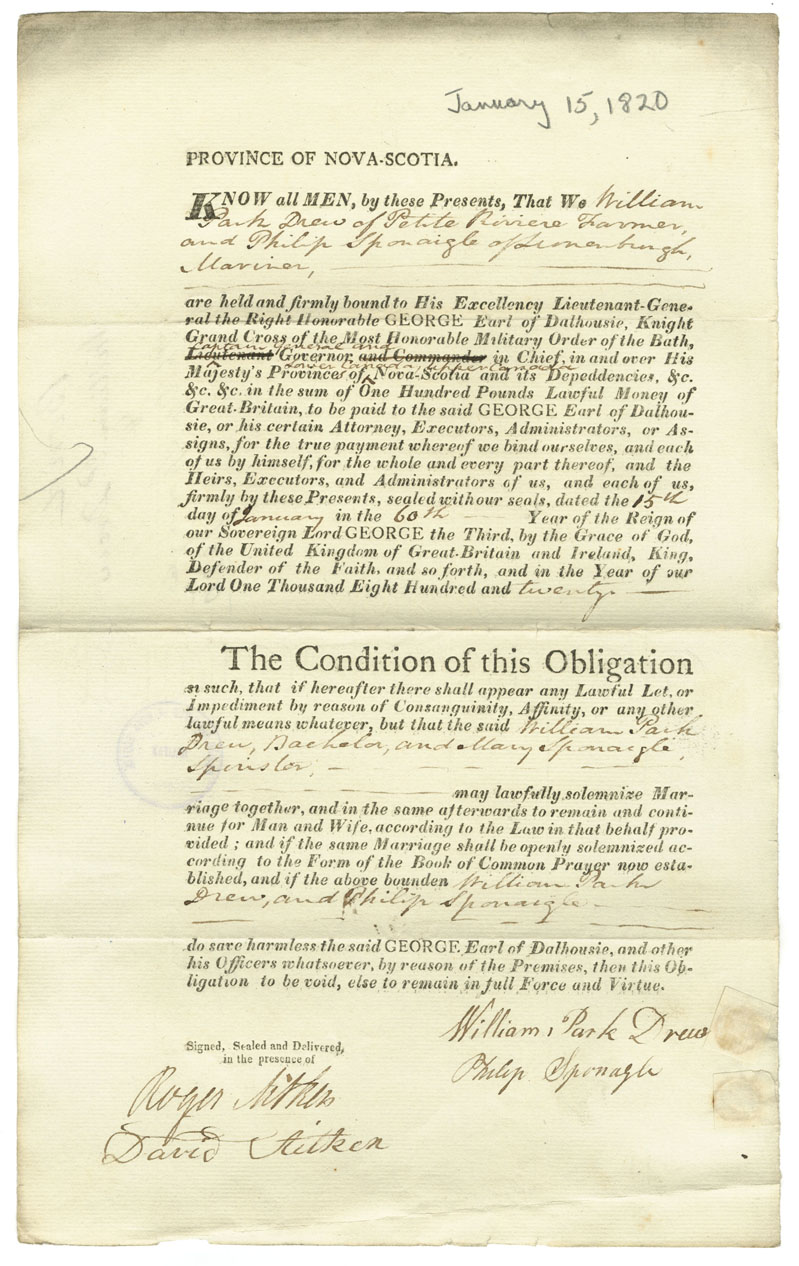 January 15, 1820
PROVINCE OF NOVA-SCOTIA.
KNOW all MEN, by these Presents, That We William
Park Drew of Petite Riviere Farmer,
and Philip Sponaigle of Lunenburgh,
Mariner,
are held and firmly bound to His Excellency Lieutenant-Gene-
ral the Right Honorable GEORGE Earl of Dalhousie, Knight
Grand Cross of the Most Honorable Military Order of the Bath,
Captain General and
Lieutenant Governor and Commander in Chief, in and over His
Lower Canada, Upper Canada
Majesty's Provinces of Nova-Scotia and its Depeddencies, &c.
&c. &c. in the sum of One Hundred Pounds Lawful Money of
Great-Britain, to be paid to the said GEORGE Earl of Dalhou-
sie, or his certain Attorney, Executors, Administrators, or As-
signs, for the true payment whereof we bind ourselves, and each
of us by himself, for the whole and every part thereof, and the
Heirs, Executors, and Administrators of us, and each of us,
firmly by these Presents, sealed with our seals, dated the 15th
day of January in the 60th Year of the Reign of
our Sovereign Lord GEORGE the Third, by the Grace of God,
of the United Kingdom of Great-Britain and Ireland, King,
Defender of the Faith, and so forth, and in the Year of our
Lord One Thousand Eight Hundred and twenty
The Condition of this Obligation
is such, that if hereafter there shall appear any Lawful Let, or
Impediment by reason of Consanguinity, Affinity, or any other
lawful means whatever, but that the said William Park
Drew, Bachelor, and Mary Sponaigle,
Spinstor,
may lawfully solemnize Mar-
riage together, and in the same afterwards to remain and conti-
nue for Man and Wife, according to the Law in that behalf pro-
vided; and if the same Marriage shall be openly solemnized ac-
cording to the Form of the Book of Common Prayer now esta-
blished, and if the above bounden William Park
Drew, and Philip Sponaigle
do save harmless the said GEORGE Earl of Dalhousie, and other
his Officers whatsoever, by reason of the Premises, then this Ob-
ligation to be void, else to remain in full Force and Virtue.
William Park Drew
Philip Sponagle
Signed, Sealed and Delivered,
in the presence of
Roger Aitken
David Aitken